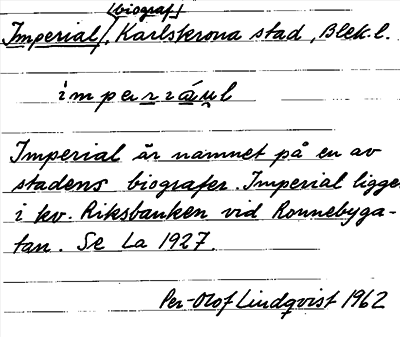 (biograf)
Imperial, Karlskrona stad, Blek. l.
imperıáu̯l
Imperial är namnet på en av
stadens biografer. Imperial ligge
i kv. Riksbanken vid Ronnebyga-
tan. Se La 1927.
Per-Olof Lindqvist 1962